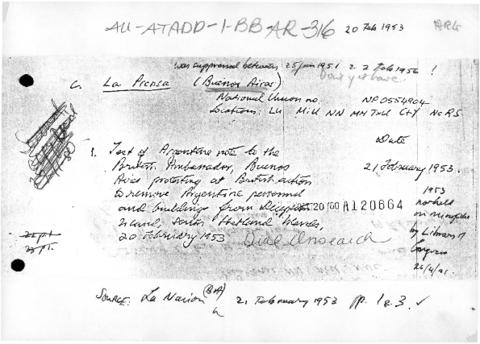 AU-ATADD-1-BB-AR-316
20 Feb 1953
ARG
was suppressed between 25 Jan 1951 & 2 Feb 1956 !
Don't yet have
C. La Prensa (Buenos Aires)
National Union no. NP0554904
Locations: LU Mill NN MH TxU CtY NcRS
Date
1. Text of Argentine note to the
British Ambassador, Buenos
Aires protesting at British action
to remove Argentine personnel
and buildings from Deception
Island, South Shetland Islands,
20 February 1953
21 February 1953.
20/00 A120664
1953
not held
on microfilm
by Library of
Congress
26/4/91.
Dial Unsearch
Source: La Nacion (BA) 21 February 1953 pp. 1 & 3. ✓